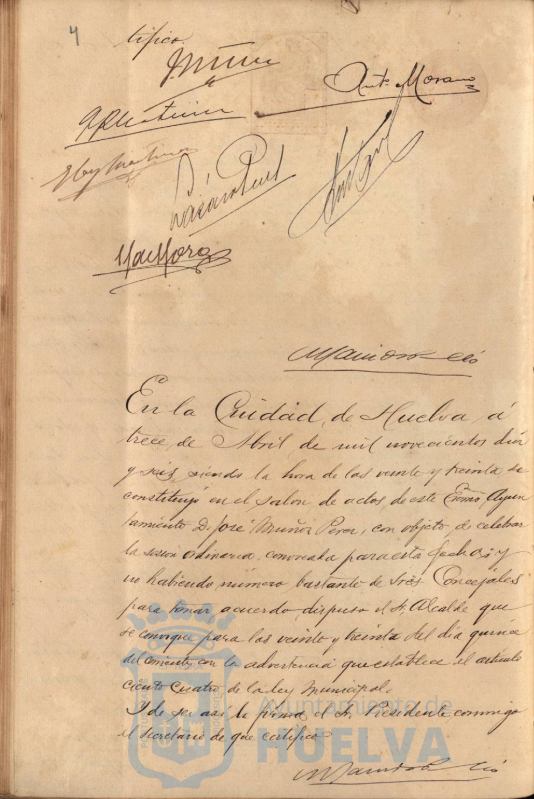 4
tifico.
Muñoz
Anto. Morano
En la Ciudad de Huelva, á
trece de Abril de mil novecientos diez
y seis, siendo la hora de las veinte y treinta se
constituyó en el salon de actos de este Excmo. Ayun
tamiento D. José Muñoz Perez, con objeto de celebrar
la sesion ordinaria convocada para esta fecha; y
no habiendo número bastante de Sres Concejales
para tomar acuerdo, dispuso el Sr. Alcalde que
se convoque para las veinte y treinta del dia quince
del corriente, con la advertencia que establece el articulo
ciento cuatro de la ley Municipal.
Y de ser asi lo firma el Sr. Presidente conmigo
el Secretario de que certifico
Ayuntamiento de
HUELVA